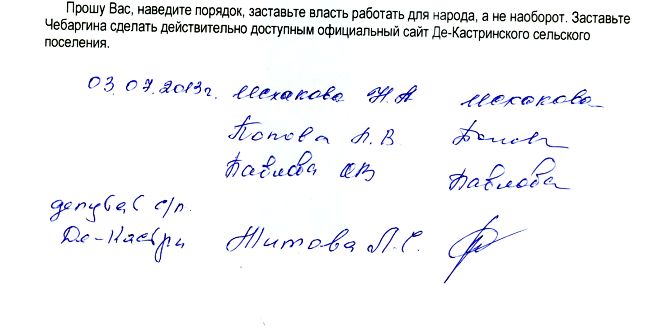 Прошу Вас, наведите порядок, заставьте власть работать для народа, а не наоборот. Заставьте
Чебаргина сделать действительно доступным официальный сайт Де-Кастринского сельского
поселения.
03.07.2013г. Исхакова Н.А Исхакова
Попова Л.В Попов
Павлова ОВ Павлова
депутат с/п.
Де-Кастри Титова Л.С.